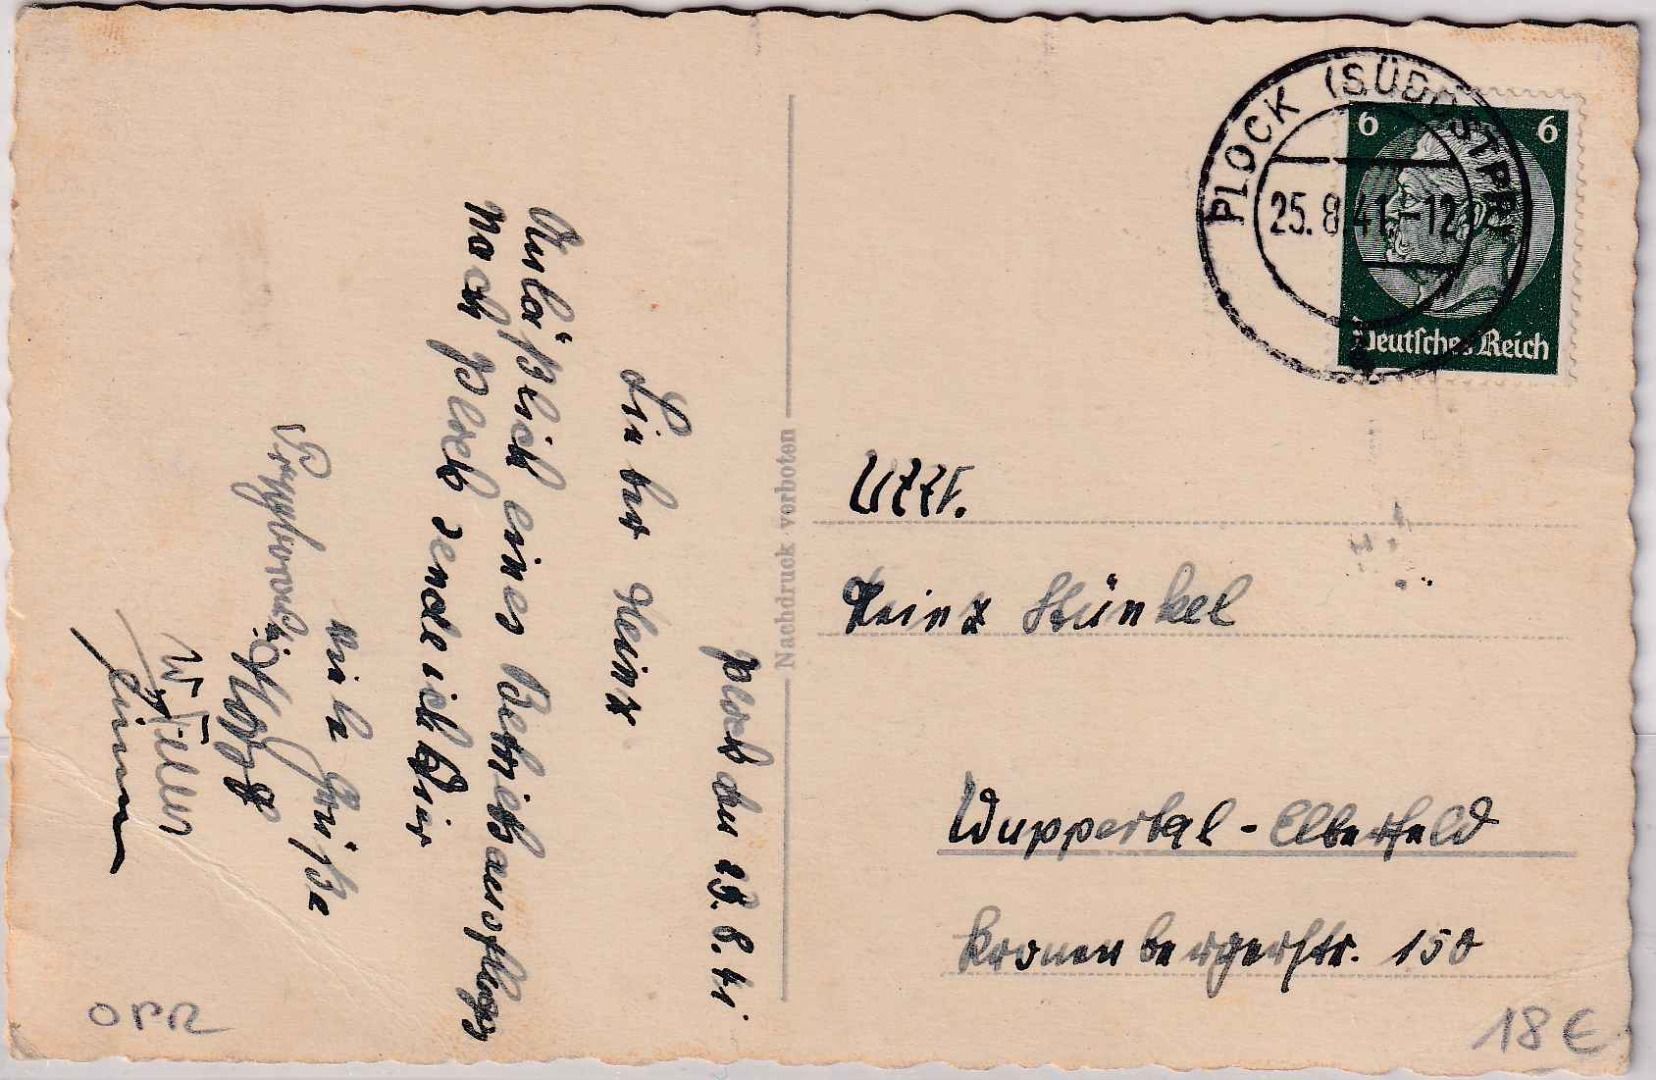 PLOCK (SÜDOSTPR.)
25.8.41.-12
6 6
Deutsches Reich
Nachdruck verboten
Plock den 23.8.41
Lieber Heinz
Anläßlich eines Betriebsausflugs
nach Plock sende ich Dir
viele Grüße
Uffz.
Heinz Stünkel
Wuppertal-Elberfeld
Kronenbergerstr. 150
OPR
18 €